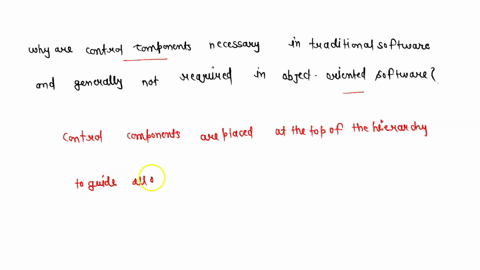 why are control components necessary in traditional software
and generally not required in object-oriented software?
control components are placed at the top of the hierarchy
to guide all